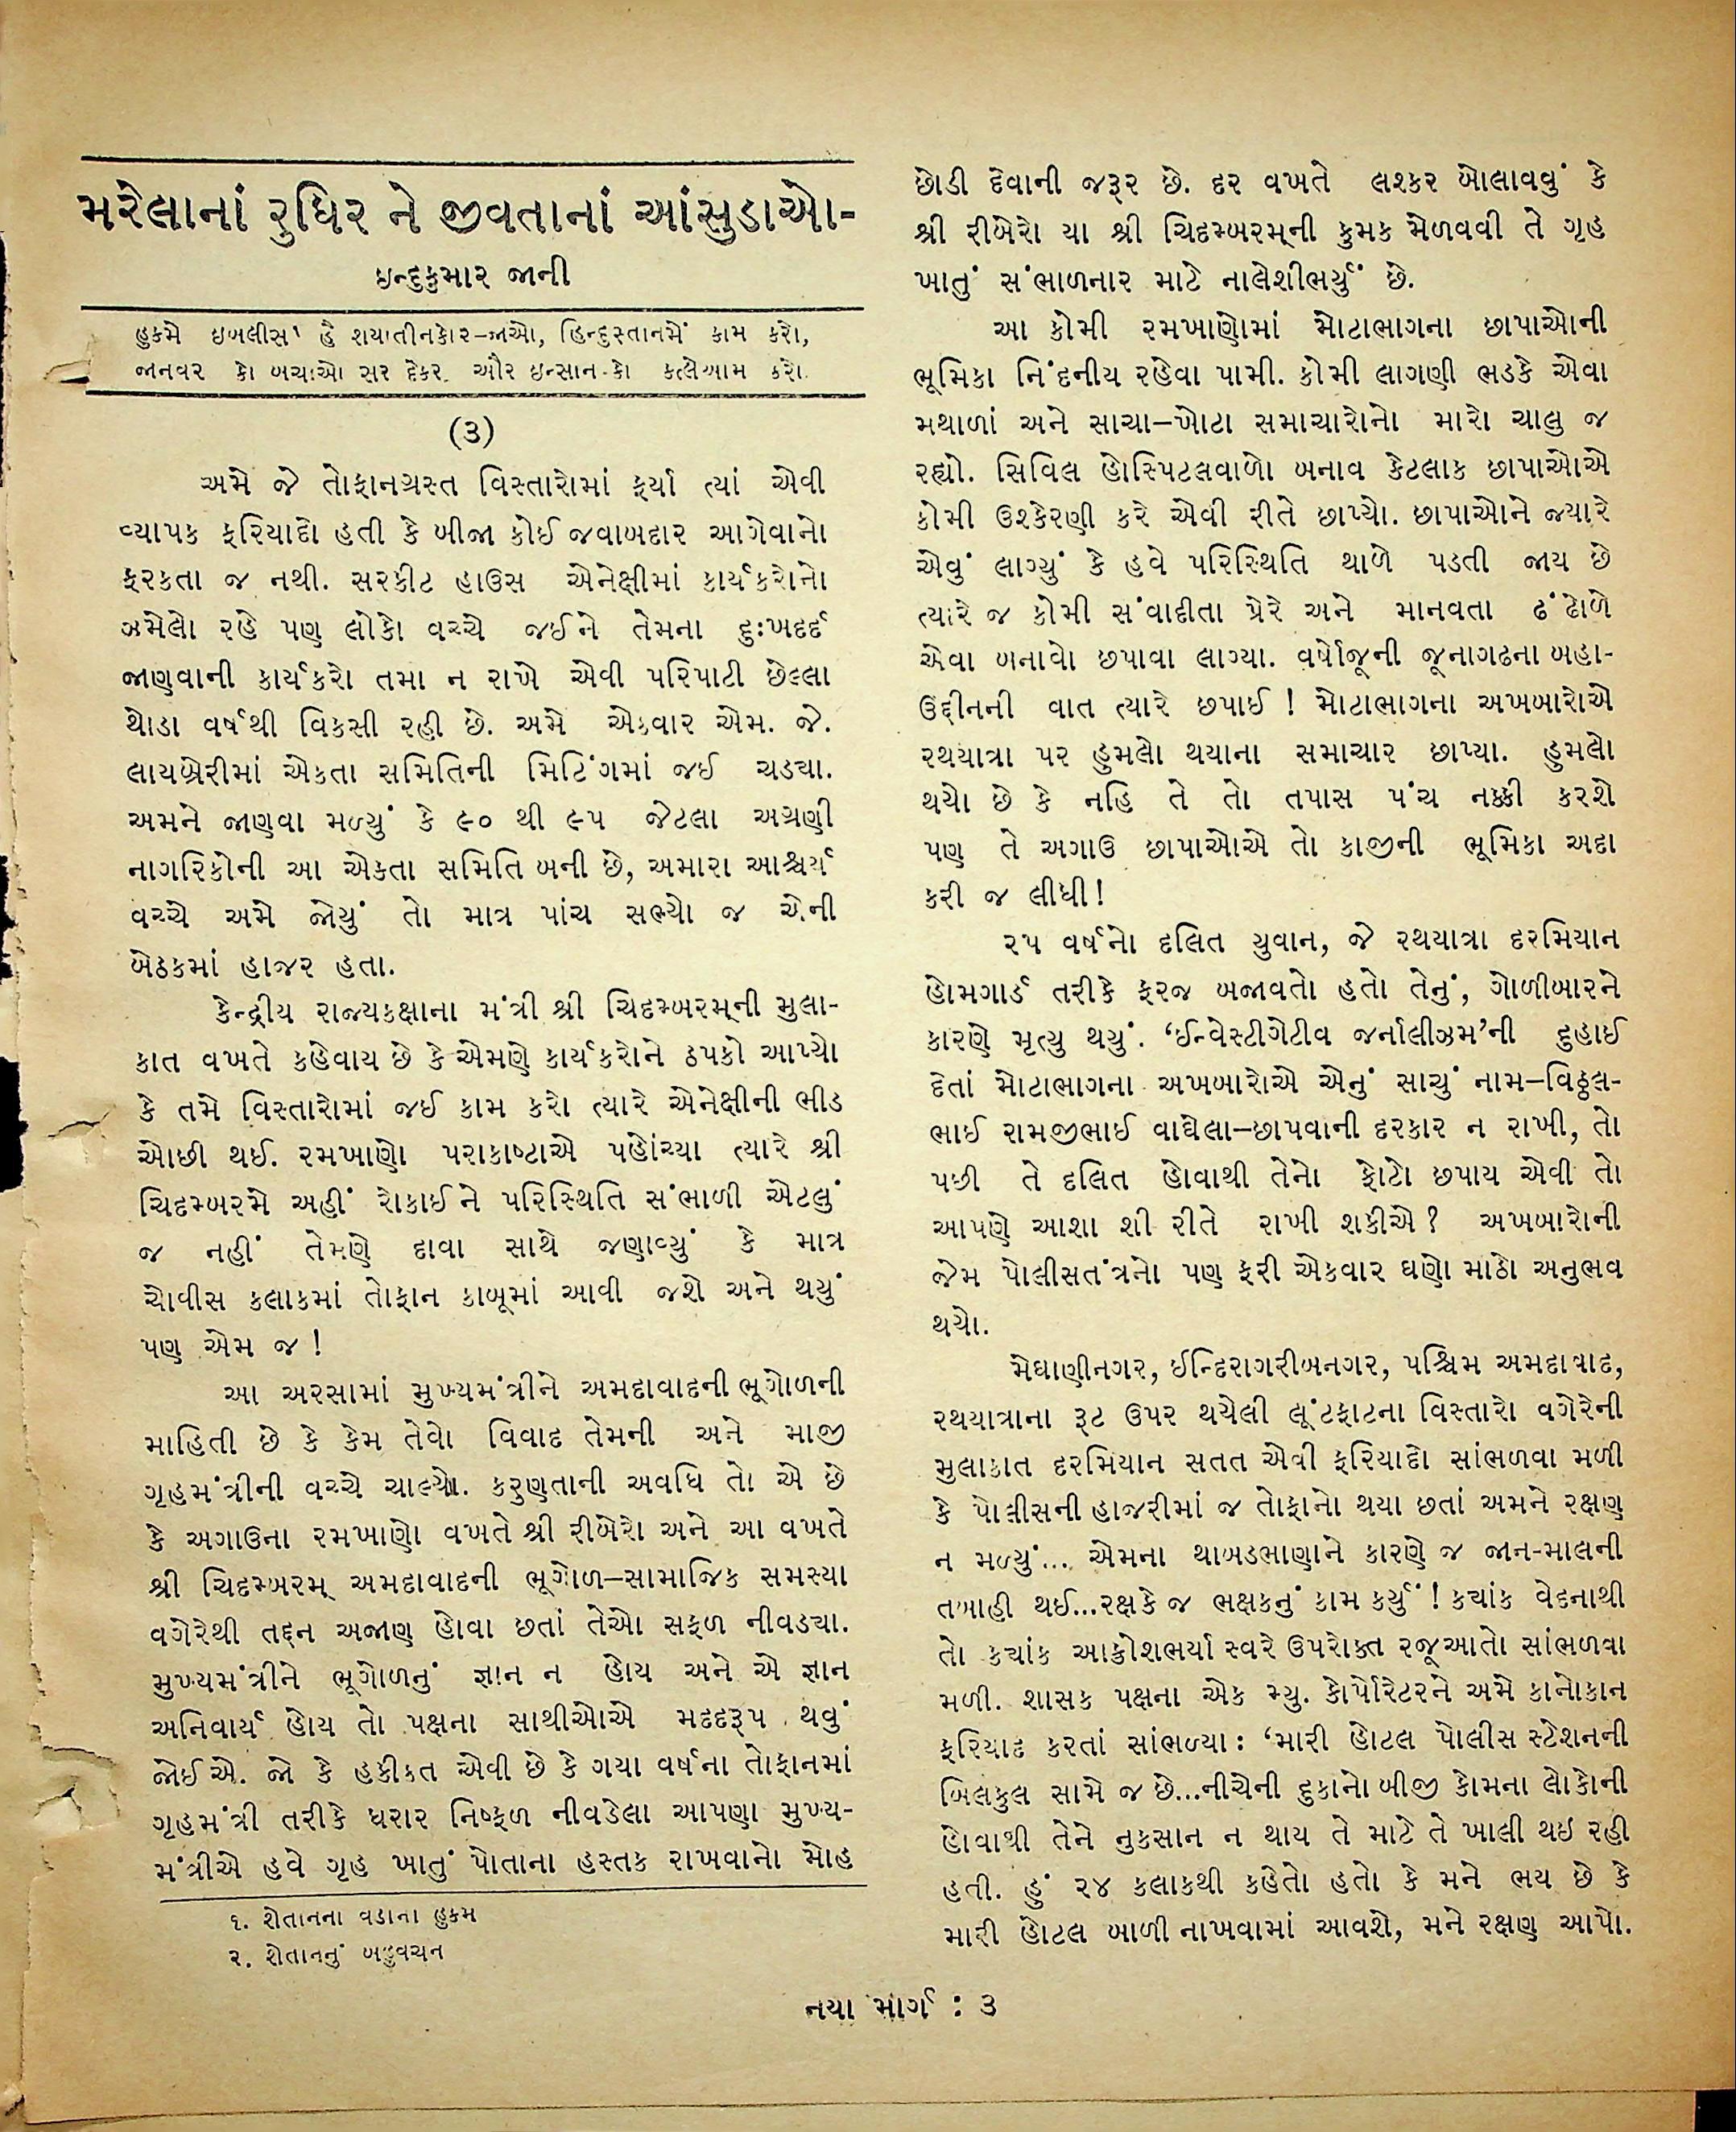 મરેલાનાં રુધિર ને જીવતાનાં આંસુડાઓ-
ઇન્દુકુમાર જાની
હુકમે ઇબલીસ¹ હૈ શયાતીનકોર-જાઓ, હિન્દુસ્તાનમેં કામ કરો,
જાનવર કો બચાઓ સર દેકર ઔર ઇન્સાન-કો કત્લેઆમ કરો.
(૩)
અમે જે તોફાનગ્રસ્ત વિસ્તારોમાં ફર્યા ત્યાં એવી
વ્યાપક ફરિયાદો હતી કે બીજા કોઈ જવાબદાર આગેવાનો
ફરકતા જ નથી. સરકીટ હાઉસ એનેક્ષીમાં કાર્યકરોનો
ઝમેલો રહે પણ લોકો વચ્ચે જઈને તેમના દુઃખદર્દ
જાણવાની કાર્યકરો તમા ન રાખે એવી પરિપાટી છેલ્લા
થોડા વર્ષથી વિકસી રહી છે. અમે એકવાર એમ. જે.
લાયબ્રેરીમાં એકતા સમિતિની મિટિંગમાં જઈ ચડ્યા.
અમને જાણવા મળ્યું કે ૯૦ થી ૯૫ જેટલા અગ્રણી
નાગરિકોની આ એકતા સમિતિ બની છે, અમારા આશ્ચર્ય
વચ્ચે અમે જોયું તો માત્ર પાંચ સભ્યો જ એની
બેઠકમાં હાજર હતા.
કેન્દ્રીય રાજ્યકક્ષાના મંત્રી શ્રી ચિદમ્બરમ્‌ની મુલા-
કાત વખતે કહેવાય છે કે એમણે કાર્યકરોને ઠપકો આપ્યો
કે તમે વિસ્તારોમાં જઈ કામ કરો ત્યારે એનેક્ષીની ભીડ
ઓછી થઈ. રમખાણો પરાકાષ્ટાએ પહોંચ્યા ત્યારે શ્રી
ચિદમ્બરમે અહીં રોકાઈને પરિસ્થિતિ સંભાળી એટલું
જ નહીં તેમણે દાવા સાથે જણાવ્યું કે માત્ર
ચોવીસ કલાકમાં તોફાન કાબૂમાં આવી જશે અને થયું
પણ એમ જ !
આ અરસામાં મુખ્યમંત્રીને અમદાવાદની ભૂગોળની
માહિતી છે કે કેમ તેવો વિવાદ તેમની અને માજી
ગૃહમંત્રીની વચ્ચે ચાલ્યો. કરુણતાની અવધિ તો એ છે
કે અગાઉના રમખાણો વખતે શ્રી રીબેરો અને આ વખતે
શ્રી ચિદમ્બરમ્ અમદાવાદની ભૂગોળ–સામાજિક સમસ્યા
વગેરેથી તદ્દન અજાણ હોવા છતાં તેઓ સફળ નીવડ્યા.
મુખ્યમંત્રીને ભૂગોળનું જ્ઞાન ન હોય અને એ જ્ઞાન
અનિવાર્ય હોય તો પક્ષના સાથીઓએ મદદરૂપ થવું
જોઈએ. જો કે હકીકત એવી છે કે ગયા વર્ષના તોફાનમાં
ગૃહમંત્રી તરીકે ધરાર નિષ્ફળ નીવડેલા આપણા મુખ્ય-
મંત્રીએ હવે ગૃહ ખાતું પોતાના હસ્તક રાખવાનો મોહ
૧. શેતાનના વડાના હુકમ
૨. શેતાનનું બહુવચન
છોડી દેવાની જરૂર છે. દર વખતે લશ્કર બોલાવવું કે
શ્રી રીબેરો યા શ્રી ચિદમ્બરમ્‌ની કુમક મેળવવી તે ગૃહ
ખાતું સંભાળનાર માટે નાલેશીભર્યું છે.
આ કોમી રમખાણોમાં મોટાભાગના છાપાઓની
ભૂમિકા નિંદનીય રહેવા પામી. કોમી લાગણી ભડકે એવા
મથાળાં અને સાચા–ખોટા સમાચારોનો મારો ચાલુ જ
રહ્યો. સિવિલ હોસ્પિટલવાળો બનાવ કેટલાક છાપાઓએ
કોમી ઉશ્કેરણી કરે એવી રીતે છાપ્યો. છાપાઓને જ્યારે
એવું લાગ્યું કે હવે પરિસ્થિતિ થાળે પડતી જાય છે
ત્યારે જ કોમી સંવાદીતા પ્રેરે અને માનવતા ઢંઢોળે
એવા બનાવો છપાવા લાગ્યા. વર્ષોજૂની જૂનાગઢના બહા-
ઉદ્દીનની વાત ત્યારે છપાઈ ! મોટાભાગના અખબારોએ
રથયાત્રા પર હુમલો થયાના સમાચાર છાપ્યા. હુમલો
થયો છે કે નહિ તે તો તપાસ પંચ નક્કી કરશે
પણ તે અગાઉ છાપાઓએ તો કાજીની ભૂમિકા અદા
કરી જ લીધી !
૨૫ વર્ષનો દલિત યુવાન, જે રથયાત્રા દરમિયાન
હોમગાર્ડ તરીકે ફરજ બજાવતો હતો તેનું, ગોળીબારને
કારણે મૃત્યુ થયું. ‘ઈન્વેસ્ટીગેટીવ જર્નાલીઝમ’ની દુહાઈ
દેતાં મોટાભાગના અખબારોએ એનું સાચું નામ–વિઠ્ઠલ-
ભાઈ રામજીભાઈ વાઘેલા–છાપવાની દરકાર ન રાખી, તો
પછી તે દલિત હોવાથી તેનો ફોટો છપાય એવી તો
આપણે આશા શી રીતે રાખી શકીએ ? અખબારોની
જેમ પોલીસતંત્રનો પણ ફરી એકવાર ઘણો માઠો અનુભવ
થયો.
મેઘાણીનગર, ઈન્દિરાગરીબનગર, પશ્ચિમ અમદાવાદ,
રથયાત્રાના રૂટ ઉપર થયેલી લૂંટફાટના વિસ્તારો વગેરેની
મુલાકાત દરમિયાન સતત એવી ફરિયાદો સાંભળવા મળી
કે પોલીસની હાજરીમાં જ તોફાનો થયા છતાં અમને રક્ષણ
ન મળ્યું... એમના થાબડભાણાને કારણે જ જાન-માલની
તબાહી થઈ...રક્ષકે જ ભક્ષકનું કામ કર્યું ! ક્યાંક વેદનાથી
તો ક્યાંક આક્રોશભર્યા સ્વરે ઉપરોક્ત રજૂઆતો સાંભળવા
મળી. શાસક પક્ષના એક મ્યુ. કોર્પોરેટરને અમે કાનોકાન
ફરિયાદ કરતાં સાંભળ્યા : ‘મારી હોટલ પોલીસ સ્ટેશનની
બિલકુલ સામે જ છે...નીચેની દુકાનો બીજી કોમના લોકોની
હોવાથી તેને નુકસાન ન થાય તે માટે તે ખાલી થઇ રહી
હતી. હું ૨૪ કલાકથી કહેતો હતો કે મને ભય છે કે
મારી હોટલ બાળી નાખવામાં આવશે, મને રક્ષણ આપો.
નયા માર્ગ : ૩